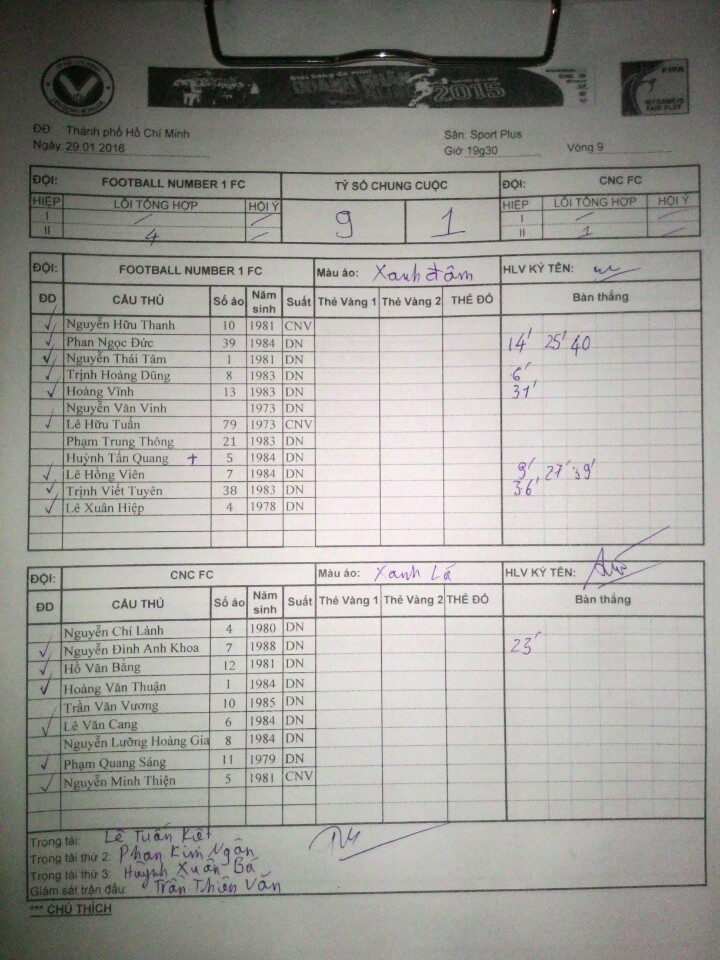 FIFA
MY GAME IS
FAIR PLAY
2015
ĐĐ: Thành phố Hồ Chí Minh Sân: Sport Plus
Ngày: 29.01 2016 Giờ 19g30 Vòng 9
ĐỘI: FOOTBALL NUMBER 1 FC TỶ SỐ CHUNG CUỘC ĐỘI: CNC FC
HIỆP LỖI TỔNG HỢP HỘI Ý 9 1 HIỆP LỖI TỔNG HỢP HỘI Ý
I - - I - -
II 4 - II 1 -
ĐỘI: FOOTBALL NUMBER 1 FC Màu áo: Xanh đậm HLV KÝ TÊN:
ĐD CẦU THỦ Số áo Năm sinh Suất Thẻ Vàng 1 Thẻ Vàng 2 THẺ ĐỎ Bàn thắng
✓ Nguyễn Hữu Thanh 10 1981 CNV
✓ Phan Ngọc Đức 39 1984 DN 14' 25' 40
✓ Nguyễn Thái Tâm 1 1981 DN
✓ Trịnh Hoàng Dũng 8 1983 DN 6'
✓ Hoàng Vĩnh 13 1983 DN 31'
Nguyễn Văn Vinh 1973 DN
✓ Lê Hữu Tuấn 79 1973 CNV
Phạm Trung Thông 21 1983 DN
Huỳnh Tấn Quang + 5 1984 DN
✓ Lê Hồng Viên 7 1984 DN 9', 27' 39'
✓ Trịnh Viết Tuyên 38 1983 DN 36'
✓ Lê Xuân Hiệp 4 1978 DN
ĐỘI: CNC FC Màu áo: Xanh Lá HLV KÝ TÊN:
ĐD CẦU THỦ Số áo Năm sinh Suất Thẻ Vàng 1 Thẻ Vàng 2 THẺ ĐỎ Bàn thắng
Nguyễn Chí Lành 4 1980 DN
✓ Nguyễn Đình Anh Khoa 7 1988 DN 23'
✓ Hồ Văn Bằng 12 1981 DN
✓ Hoàng Văn Thuận 1 1984 DN
Trần Văn Vương 10 1985 DN
✓ Lê Văn Cang 6 1984 DN
Nguyễn Lưỡng Hoàng Gia 8 1984 DN
✓ Phạm Quang Sáng 11 1979 DN
✓ Nguyễn Minh Thiện 5 1981 CNV
Trọng tài: Lê Tuấn Kiệt
Trọng tài thứ 2: Phan Kim Ngân
Trọng tài thứ 3: Huỳnh Xuân Bá
Giám sát trận đấu: Trần Thiện Văn
*** CHÚ THÍCH